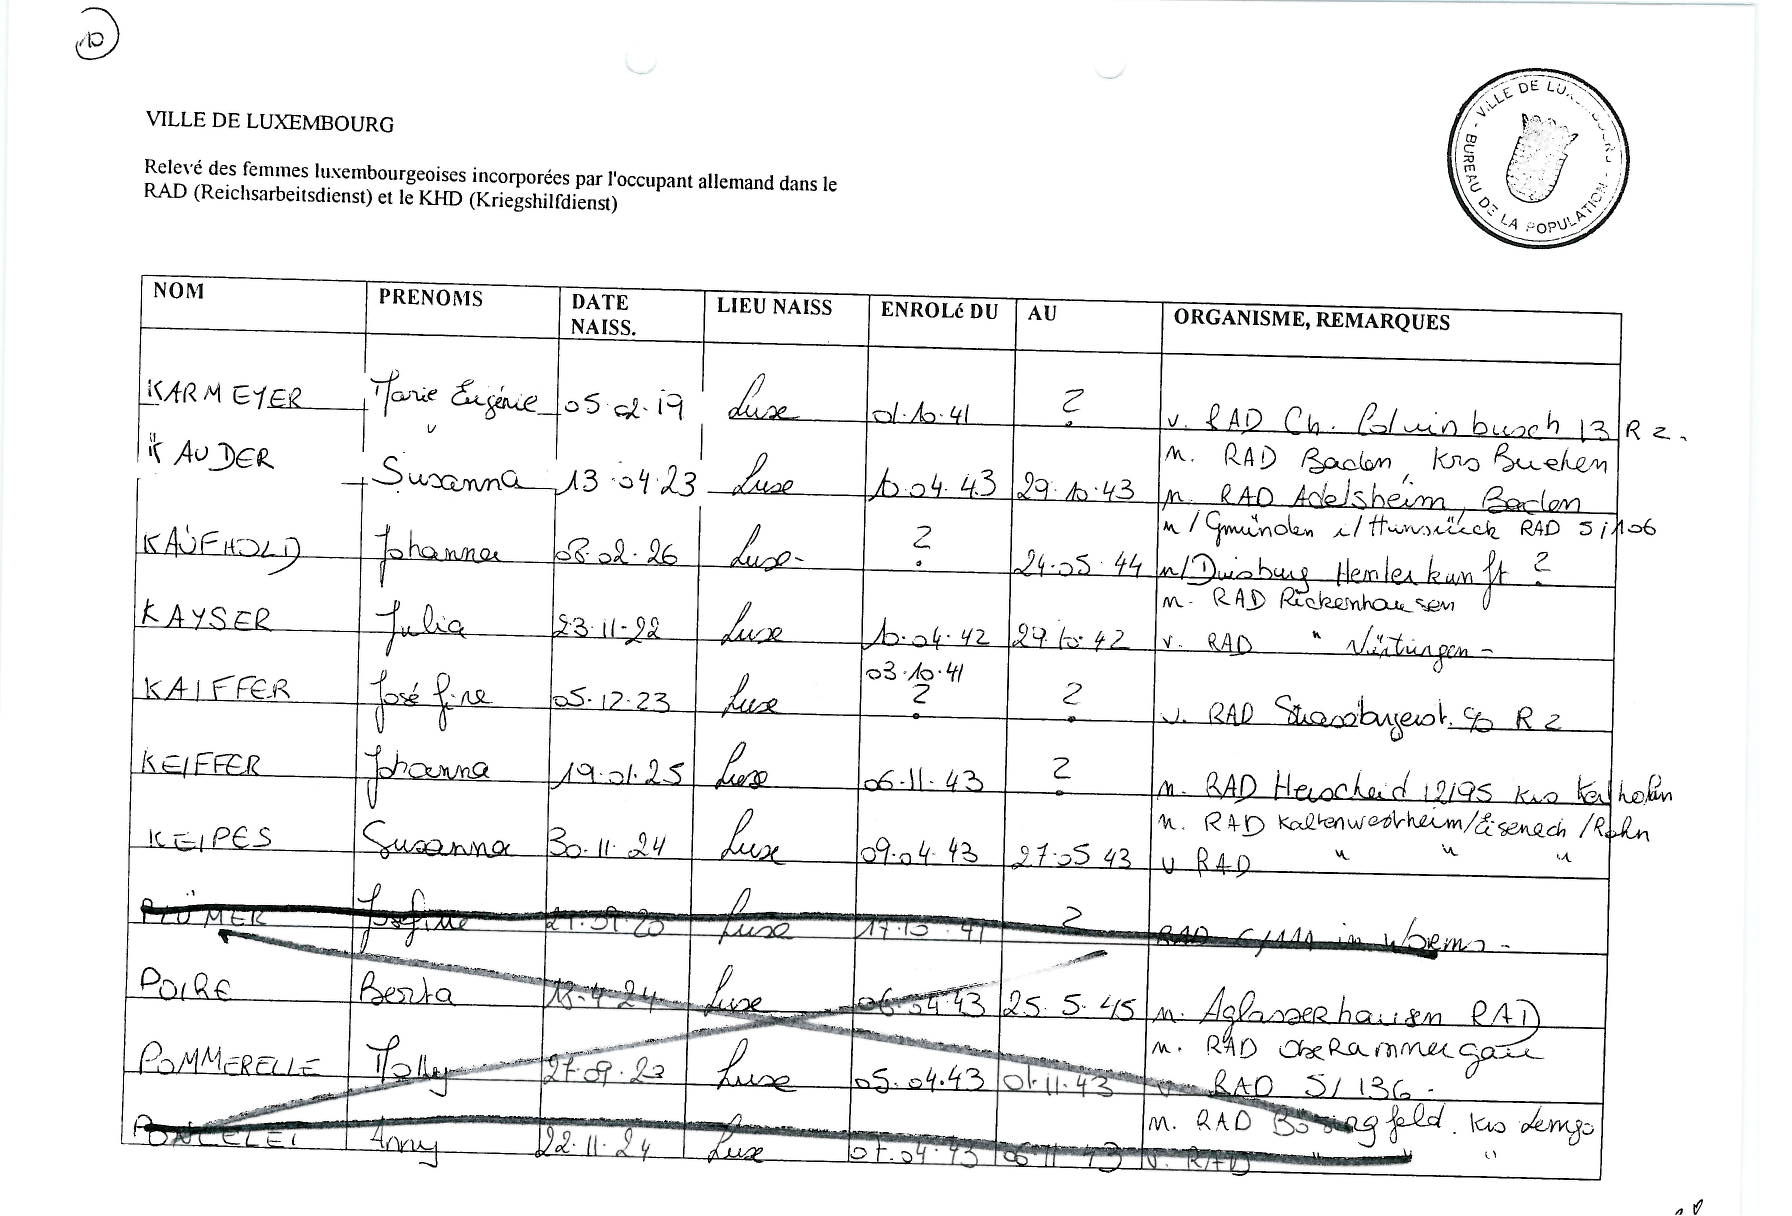 10
VILLE DE LUXEMBOURG
Relevé des femmes luxembourgeoises incorporées par l'occupant allemand dans le
RAD (Reichsarbeitsdienst) et le KHD (Kriegshilfdienst)
VILLE DE LUXEMBOURG - BUREAU DE LA POPULATION -
NOM PRENOMS DATE NAISS. LIEU NAISS ENROLé DU AU ORGANISME, REMARQUES
KARMEYER Marie Eugénie 05.02.19 Luxe 01.10.41 ? v. RAD Ch. 13 R 2.
m. RAD Baden, Krs Buchen
KAUDER Susanna 13.04.23 Luxe 10.04.43 29.10.43 m. RAD Adelsheim, Baden
m/Gmünden i/Hunsrück RAD 5/106
KAUFHOLD Johanna 08.02.26 Luxe- ? 24.05.44 m/Duisburg ?
m. RAD Rickenhausen
KAYSER Julia 23.11.22 Luxe 10.04.42 29.10.42 v. RAD " Nürtingen -
03.10.41
KAIFFER Joséfine 05.12.23 Luxe ? ? v. RAD R 2
KEIFFER Johanna 19.01.25 Luxe 06.11.43 ? m. RAD Herscheid 12/95 Krs
m. RAD Kaltenwestheim/Eisenach/Röhn
KEIPES Susanna 30.11.24 Luxe 09.04.43 27.05 43 v RAD " " "
PLÜMER Josefine Luxe 17.10.41 ? RAD in Worms -
POIRE Berta 18.4.24 Luxe 06.04.43 25.5.45 m. Aglasserhausen RAD
m. RAD Oberammergau
POMMERELLE Molly 27.09.23 Luxe 05.04.43 01.11.43 v. RAD 5/136 -
m. RAD Bösingfeld. Krs Lemgo
PONCELET Anny 22.11.24 Luxe 07.04.43 06 11 43 v. RAD " "